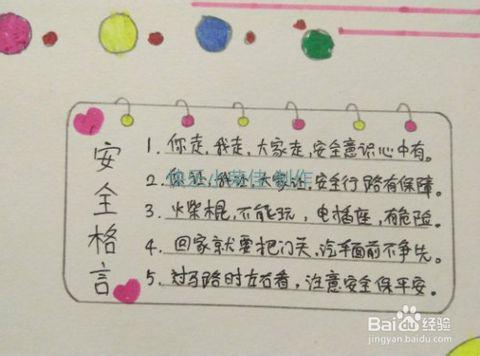 安全格言
1. 你走,我走,大家走,安全意识心中有。
2. 你让,我让,大家让,安全行路有保障。
3. 火柴棍,不能玩,电插座,有危险。
4. 回家就要把门关,汽车面前不争先。
5. 过马路时左右看,注意安全保平安。
制作
Baidu经验
jingyan.baidu.com